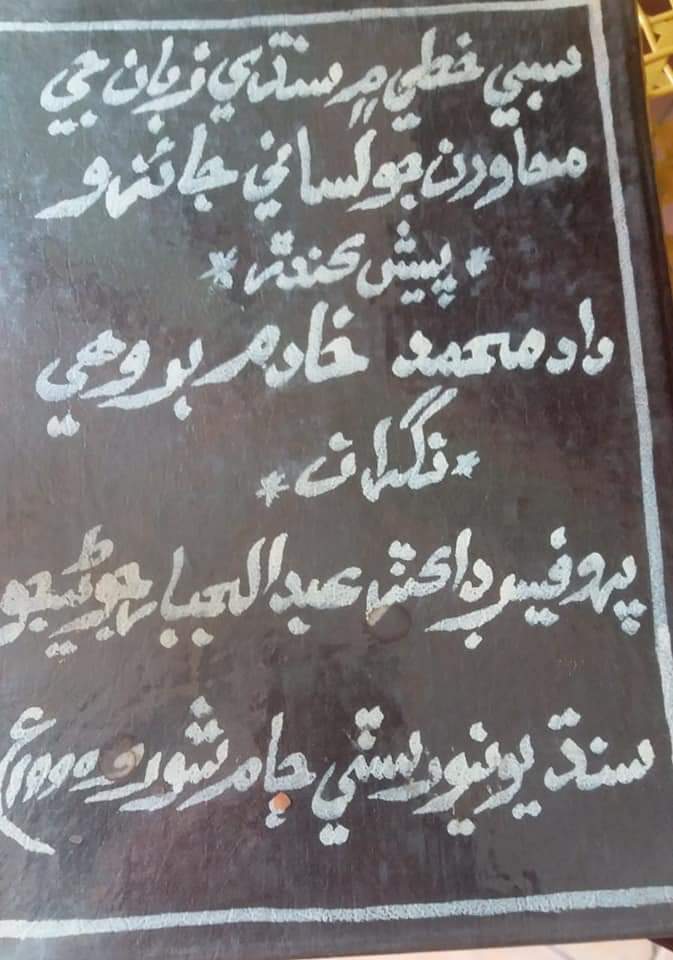 سبي خطي ۾ سنڌي زبان جي
محاورن جو لساني جائزو
* پيش ڪندڙ *
داد محمد خادم بروهي
* نگران *
پروفيسر ڊاڪٽر عبدالجبار جوڻيجو
سنڌ يونيورسٽي ڄام شورو